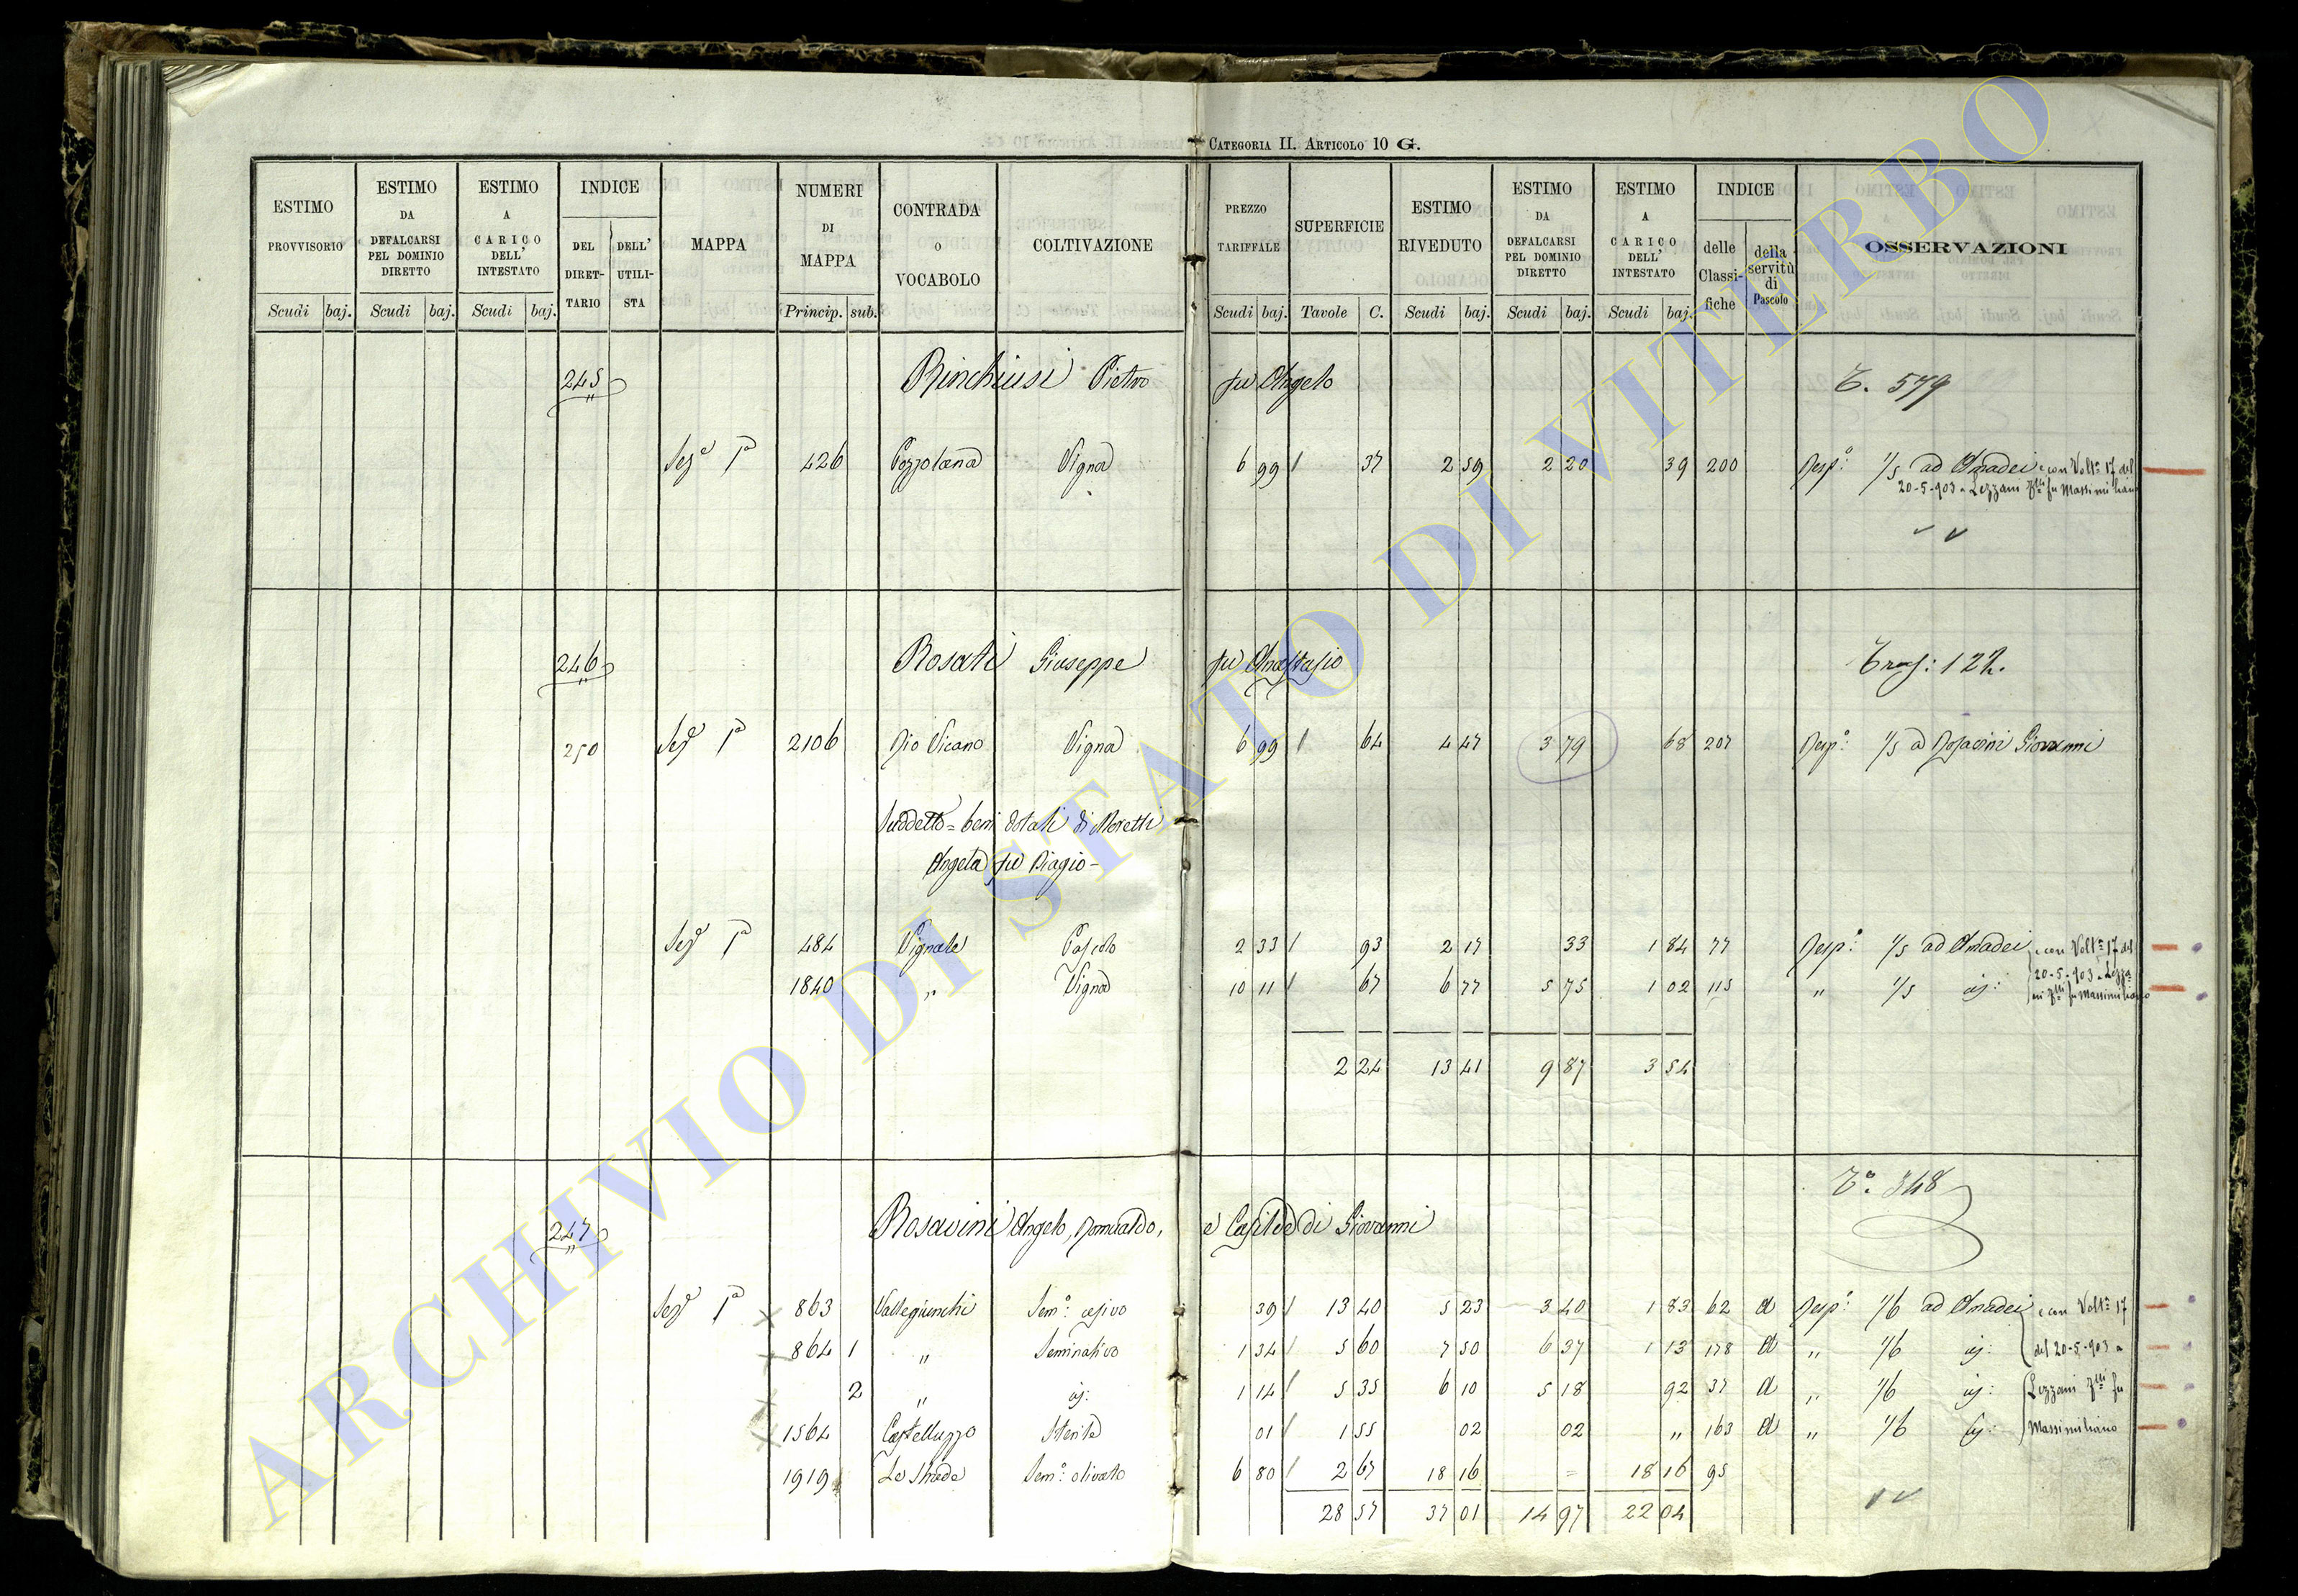 CATEGORIA II. ARTICOLO 10 G.
ESTIMO PROVVISORIO Scudi baj.
ESTIMO DA DEFALCARSI PEL DOMINIO DIRETTO Scudi baj.
ESTIMO A CARICO DELL' INTESTATO Scudi baj.
INDICE DEL DIRETTARIO DELL' UTILISTA
MAPPA
NUMERI DI MAPPA Princip. sub.
CONTRADA O VOCABOLO
COLTIVAZIONE
PREZZO TARIFFALE Scudi baj.
SUPERFICIE Tavole C.
ESTIMO RIVEDUTO Scudi baj.
ESTIMO DA DEFALCARSI PEL DOMINIO DIRETTO Scudi baj.
ESTIMO A CARICO DELL' INTESTATO Scudi baj.
INDICE delle Classifiche della servitù di Pascolo
OSSERVAZIONI
245 Rinchiusi Pietro fu Angelo T. 579
Sezе 1a 426 Pozzolana Vigna 6 99 / 37 2 59 2 20 39 200 Risp: 1/5 ad Amadei e con Voltª 17 del
20-5-903 a Lezzani fu Massimiliano
246 Rosati Giuseppe fu Anastasio Tras: 122.
250 Sezе 1a 2106 Rio Vicano Vigna 6 99 / 64 4 47 3 79 68 207 Risp: 1/5 a Rosavini Giovanni
Suddetto = beni dotali di Moretti
Angela fu Biagio -
Sezе 1a 484 Vignale Pascolo 2 33 / 93 2 17 33 1 84 77 Risp: 1/5 ad Amadei e con Voltª 17 del
1840 " Vigna 10 11 / 67 6 77 5 75 1 02 115 " 1/5 id: 20-5-903 a Lezzani fu Massimiliano
2 24 13 41 9 87 3 54
Tº. 348
247 Rosavini Angelo, Romualdo, e Casilde di Giovanni
Sezе 1a 863 Vallegiunchi Sem: cesivo 39 / 13 40 5 23 3 40 1 83 62 a Risp: 1/6 ad Amadei e con Voltª 17
864 1 " Seminativo 1 34 / 5 60 7 50 6 37 1 13 178 a " 1/6 id: del 20-5-903 a
2 " id: 1 14 / 5 35 6 10 5 18 92 37 a " 1/6 id: Lezzani fu
1564 Castelluzzo Sterile 01 / 1 55 02 02 " 163 a " 1/6 id: Massimiliano
1919 Le Strade Sem: olivato 6 80 / 2 67 18 16 = 18 16 95
28 57 37 01 14 97 22 04
ARCHIVIO DI STATO DI VITERBO